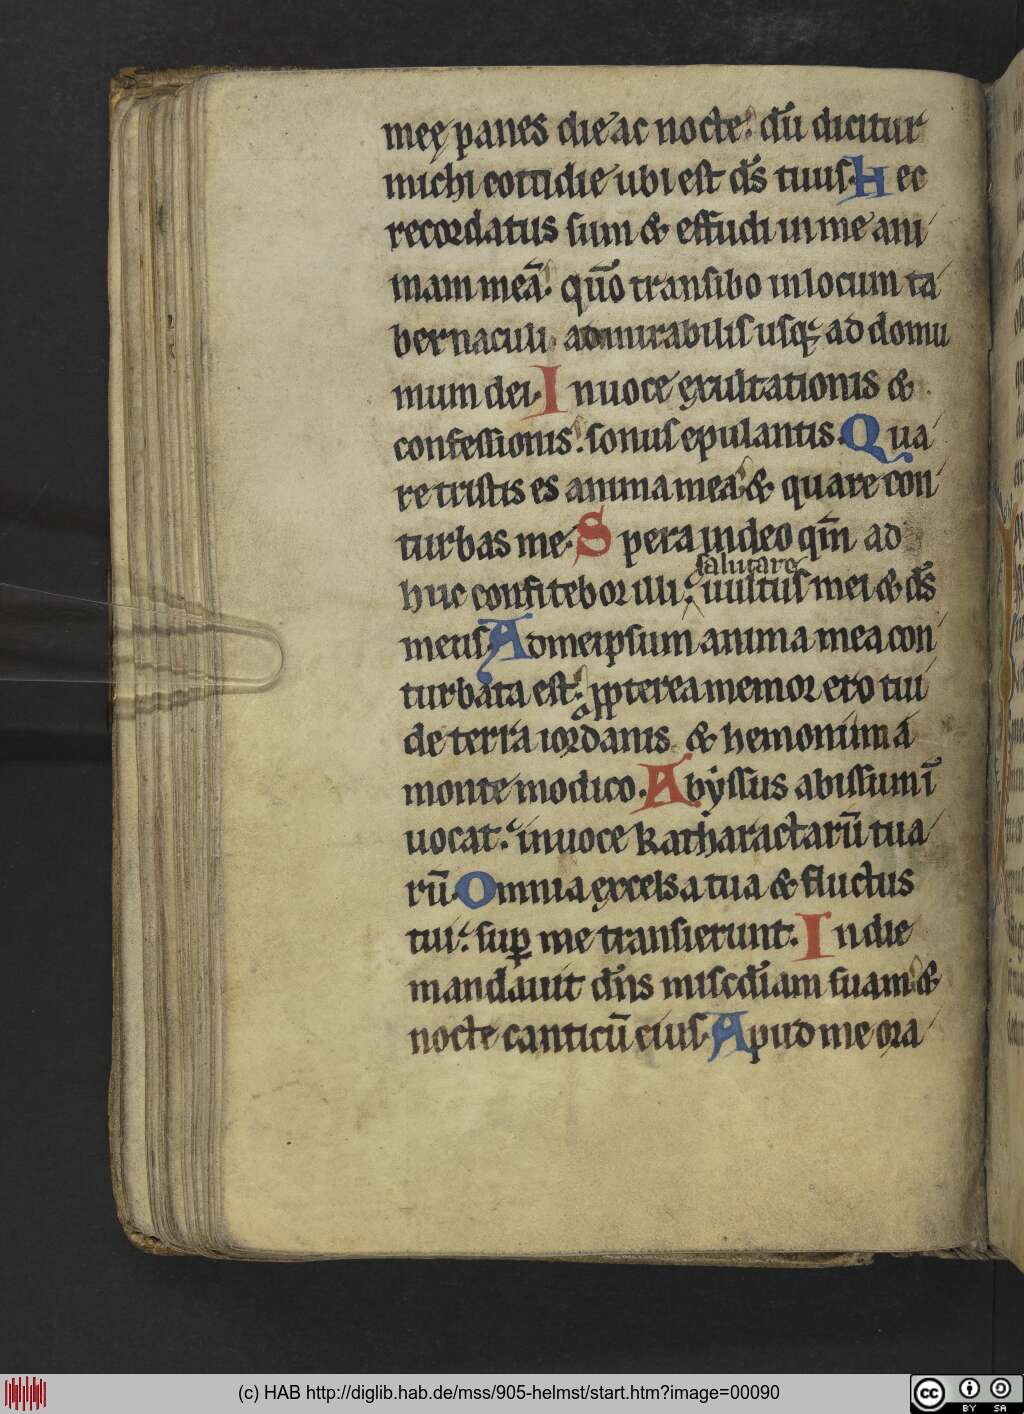 meę panes die ac nocte. dū dicitur
michi cottidie ubi est ds̄ tuus. Hec
recordatus sum & effudi in me ani
mam meā. qūo transibo in locum ta
bernaculi admirabilis usq; ad domu
mum dei. In uoce exultationis &
confessionis. sonus epulantis. Qua
re tristis es anima mea & quare con
turbas me. Spera in deo qm̄ ad
salutare
huc confitebor illi. uultus mei & ds̄
meus. Ad meipsum anima mea con
turbata est. ꝓpterea memor ero tui
de terra iordanis & hemoniim a
monte modico. Abẏssus abissum ī
uocat. in uoce katharactarū tua
rū. Omnia excelsa tua & fluctus
tui. sup̱ me transierunt. In die
mandauit dn̄s misc̄diam suam &
nocte canticū eius. Apud me ora
(c) HAB http://diglib.hab.de/mss/905-helmst/start.htm?image=00090
cc BY SA